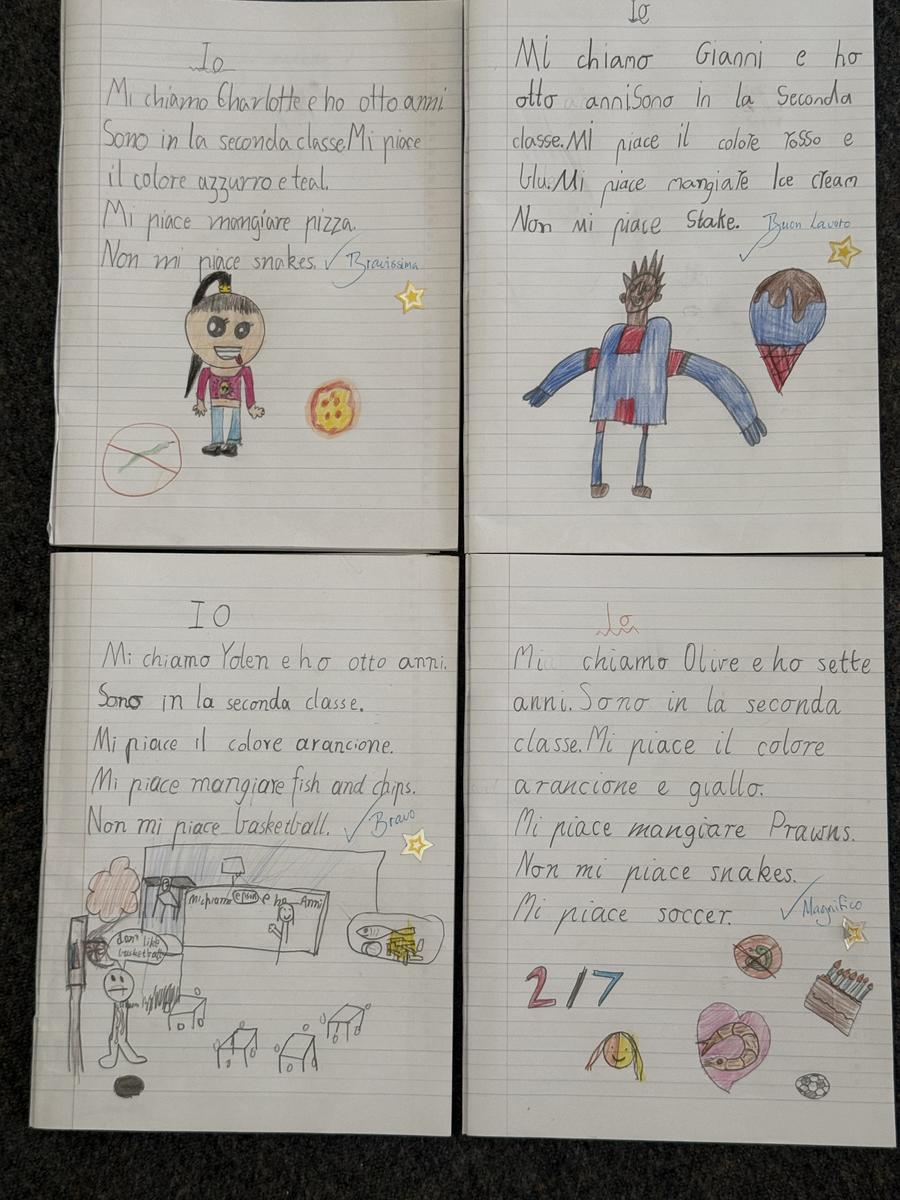 Io
Mi chiamo Charlotte e ho otto anni
Sono in la seconda classe.Mi piace
il colore azzurro e teal.
Mi piace mangiare pizza.
Non mi piace snakes.
Bravissima
Io
Mi chiamo Gianni e ho
otto anniSono in la Seconda
classe.Mi piace il colore rosso e
blu.Mi piace mangiare Ice cream
Non mi piace Stake.
Buon Lavoro
IO
Mi chiamo Yolen e ho otto anni.
Sono in la seconda classe.
Mi piace il colore arancione.
Mi piace mangiare fish and chips.
Non mi piace basketball.
Bravo
Mi chiamo
e ho
Anni
don't like
basketball
Io
Mi chiamo Olive e ho sette
anni.Sono in la seconda
classe.Mi piace il colore
arancione e giallo.
Mi piace mangiare Prawns.
Non mi piace snakes.
Mi piace soccer.
Magnifico
2/7